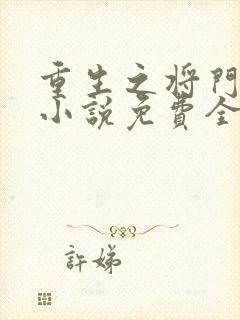 重生之将門
小說免費全
許娣